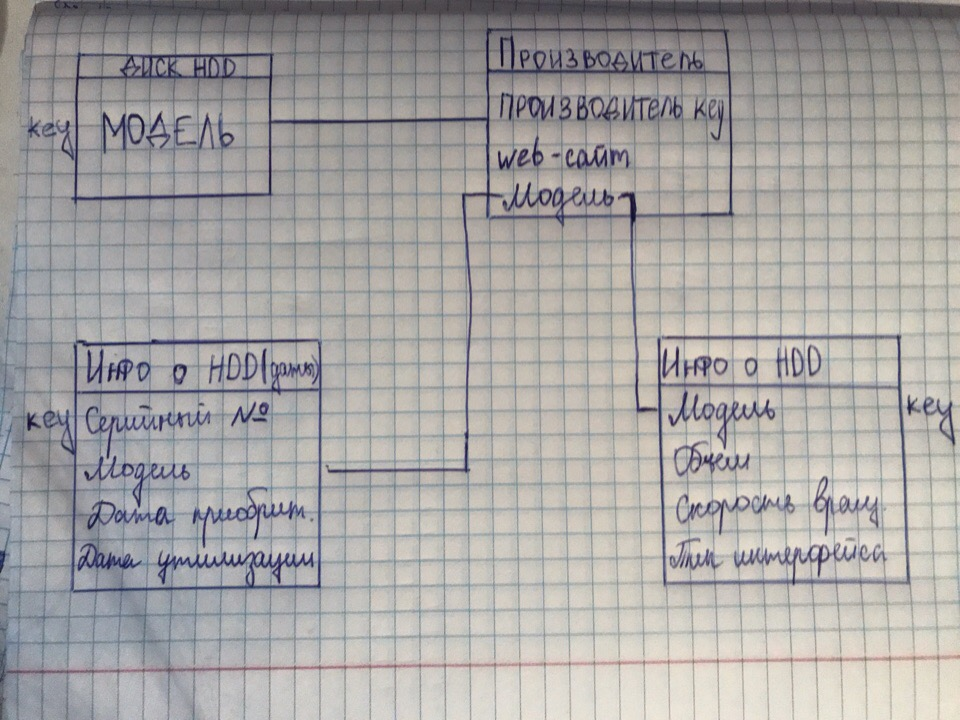 ДИСК HDD
key МОДЕЛЬ
Производитель
ПРОИЗВОДИТЕЛЬ key
web-сайт
Модель
Инфо о HDD (даты)
key Серийный №
Модель
Дата приобрит.
Дата утилизации
Инфо о HDD
Модель key
Объем
Скорость вращ.
Тип интерфейса